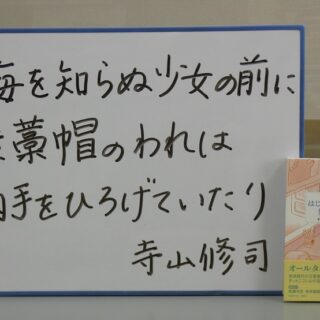 海を知らぬ少女の前に
麦藁帽のわれは
両手をひろげていたり
寺山修司
はじ
オールタ